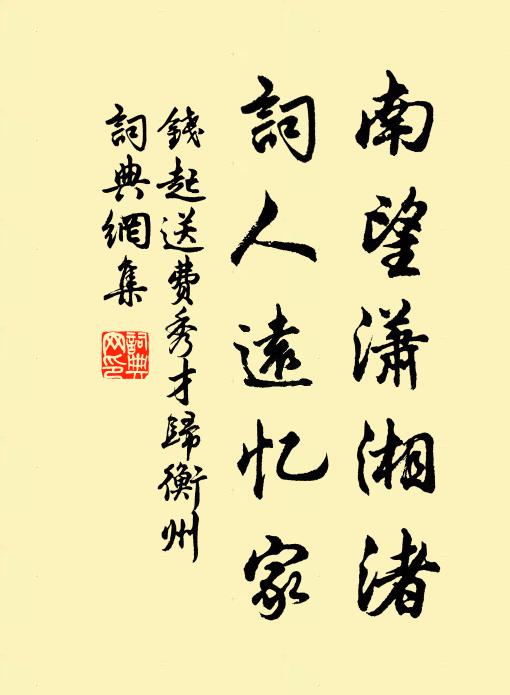 南望瀟湘渚
詞人遠忆家
錢起送費秀才歸衡州
詞典網集
詞典
网印